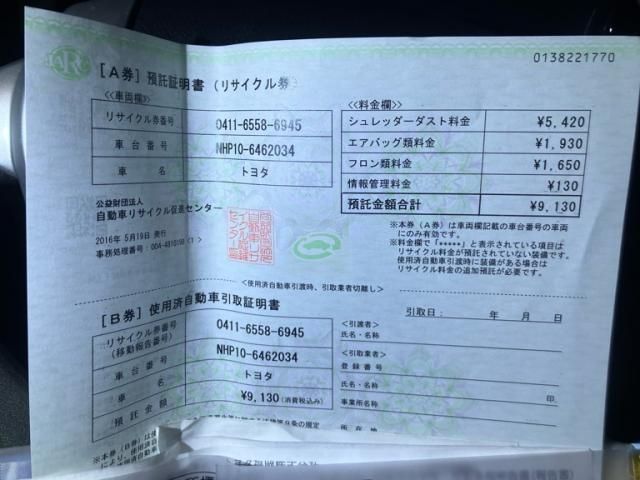 JARC
0138221770
[A券] 預託証明書 (リサイクル券
≪車両欄≫
リサイクル券番号 0411-6558-6945
車台番号 NHP10-6462034
車名 トヨタ
公益財団法人
自動車リサイクル促進センター
2016年 5月19日 発行
事務処理番号:
≪料金欄≫
シュレッダーダスト料金 ¥5,420
エアバッグ類料金 ¥1,930
フロン類料金 ¥1,650
情報管理料金 ¥130
預託金額合計 ¥9,130
※本券（A券）は車両欄記載の車台番号の車両
にのみ有効です。
※料金欄で「*****」と表示されている項目は
リサイクル料金が預託されていない装備です。
使用済自動車引渡時に装備がある場合は
リサイクル料金の追加預託が必要です。
<使用済自動車引渡時、引取業者切離し>
[B券] 使用済自動車引取証明書
リサイクル券番号
(移動報告番号) 0411-6558-6945
車台番号 NHP10-6462034
車名 トヨタ
預託金額 ¥9,130 (消費税込み)
引取日: 年 月 日
<引渡者>
氏名・名称
<引取業者>
登録番号
氏名・名称 印
事業所名称
所在地
※本券（B券）は使